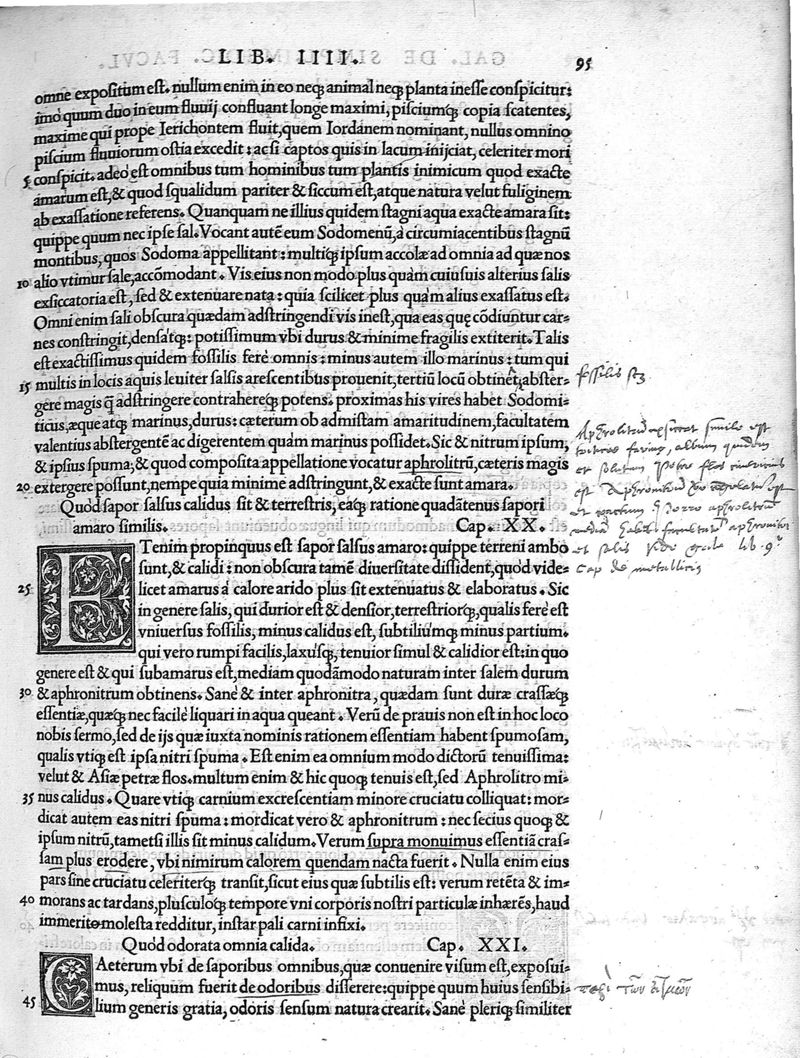 LIB. IIII. 95
omne expositum est. nullum enim in eo neq; animal neq; planta inesse conspicitur:
imò quum duo in eum fluuij confluant longe maximi, pisciumq; copia scatentes,
maxime qui prope Ierichontem fluit, quem Iordanem nominant, nullus omnino
piscium fluuiorum ostia excedit: ac si captos quis in lacum inijciat, celeriter mori
5 conspicit. adeo est omnibus tum hominibus tum plantis inimicum quod exacte
amarum est, & quod squalidum pariter & siccum est, atque natura velut fuliginem
ab exassatione referens. Quanquam ne illius quidem stagni aqua exacte amara sit:
quippe quum nec ipse sal. Vocant autē eum Sodomenū, à circumiacentibus stagnū
montibus, quos Sodoma appellitant: multiq; ipsum accolæ ad omnia ad quæ nos
10 alio vtimur sale, accōmodant. Vis eius non modo plus quàm cuiusuis alterius salis
exsiccatoria est, sed & extenuare nata: quia scilicet plus quàm alius exassatus est.
Omni enim sali obscura quædam adstringendi vis inest, qua eas quę cōdiuntur car-
nes constringit, densatq;: potissimum vbi durus & minime fragilis extiterit. Talis
est exactissimus quidem fossilis fere omnis: minus autem illo marinus: tum qui
15 multis in locis aquis leuiter salsis arescentibus prouenit, tertiū locū obtinet, abster-
gere magis q̄ adstringere contrahereq; potens. proximas his vires habet Sodomi-
ticus, æque atq; marinus, durus: cæterum ob admistam amaritudinem, facultatem
valentius abstergentē ac digerentem quàm marinus possidet. Sic & nitrum ipsum,
& ipsius spuma, & quod composita appellatione vocatur aphrolitrū, cæteris magis
20 extergere possunt, nempe quia minime adstringunt, & exacte sunt amara.
Quòd sapor salsus calidus sit & terrestris, eaq; ratione quadātenus sapori
amaro similis. Cap. XX.
ETenim propinquus est sapor salsus amaro: quippe terreni ambo
sunt, & calidi: non obscura tamē diuersitate dissident, quòd vide-
25 licet amarus à calore arido plus sit extenuatus & elaboratus. Sic
in genere salis, qui durior est & densior, terrestriorq;, qualis fere est
vniuersus fossilis, minus calidus est, subtiliumq; minus partium.
qui vero rumpi facilis, laxusq;, tenuior simul & calidior est: in quo
genere est & qui subamarus est, mediam quodāmodo naturam inter salem durum
30 & aphronitrum obtinens. Sanè & inter aphronitra, quædam sunt duræ crassæq;
essentiæ, quæq; nec facilè liquari in aqua queant. Verū de prauis non est in hoc loco
nobis sermo, sed de ijs quæ iuxta nominis rationem essentiam habent spumosam,
qualis vtiq; est ipsa nitri spuma. Est enim ea omnium modo dictorū tenuissima:
velut & Asiæ petræ flos. multum enim & hic quoq; tenuis est, sed Aphrolitro mi-
35 nus calidus. Quare vtiq; carnium excrescentiam minore cruciatu colliquat: mor-
dicat autem eas nitri spuma: mordicat vero & aphronitrum: nec secius quoq; &
ipsum nitrū, tametsi illis sit minus calidum. Verum supra monuimus essentiā cras-
sam plus erodere, vbi nimirum calorem quendam nacta fuerit. Nulla enim eius
pars sine cruciatu celeriterq; transit, sicut eius quæ subtilis est: verum retēta & im-
40 morans ac tardans, plusculoq; tempore vni corporis nostri particulæ inhærēs, haud
immerito molesta redditur, instar pali carni infixi.
Quòd odorata omnia calida. Cap. XXI.
CAeterum vbi de saporibus omnibus, quæ conuenire visum est, exposui-
mus, reliquum fuerit de odoribus disserere: quippe quum huius sensibi-
45 lium generis gratia, odoris sensum natura crearit. Sanè pleriq; similiter
fossilis
cap de metallicis